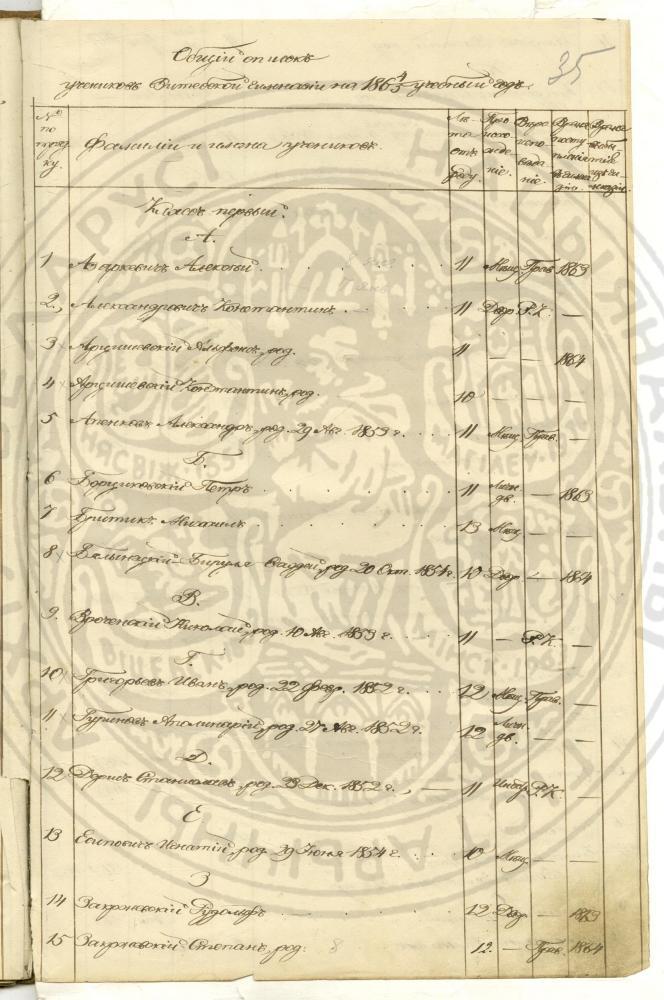 35
Общій списокъ
учениковъ Витебской Гимназіи на 1864/5 учебный годъ.
№ по поряд ку. Фамиліи и имена учениковъ. Лѣта отъ роду. Происхожденіе. Вѣроисповѣданіе. Время поступленія въ гимназію. Время
Классъ первый.
А.
1 Алексѣй 11 Мѣщ. Прав. 1863
2 Александровичъ Константинъ 11 Двор. Р.К. —
3 Арцишевскій Альфонсъ, род. 11 — — 1864
4 Арцишевскій Константинъ, род. 10 — — —
5 Александръ, род. 29 Авг. 1853 г. 11 Мѣщ. Прав. —
Б.
6 Борщиковскій Петръ 11 Личн. дв. — 1863
7 Михаилъ 13 Мѣщ. — —
8 Бялыницкій-Бируля Фаддей, род. 20 Окт. 1854 г. 10 Двор. — 1864
В.
9. Николай, род. 10 Авг. 1853 г. 11 — Р.К. —
Г.
10 Григорьевъ Иванъ, род. 22 Февр. 1852 г. 12 Мѣщ. Прав. —
11 Аполинарій, род. 27 Авг. 1852 г. 12 Личн. дв. — —
Д.
12 Станиславъ, род. 28 Дек. 1852 г., — 11 Р.К. —
Е
13 Есиповичъ Игнатій, род. 29 Іюня 1854 г. 10 Мѣщ. — —
З
14 Закржевскій Рудольфъ 12 Двор. — 1863
15 Закржевскій Степанъ, род. 8 12. — Прав. 1864